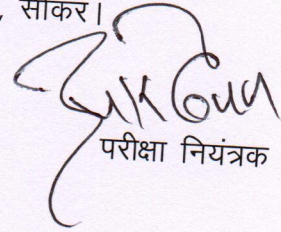 , सीकर।
परीक्षा नियंत्रक